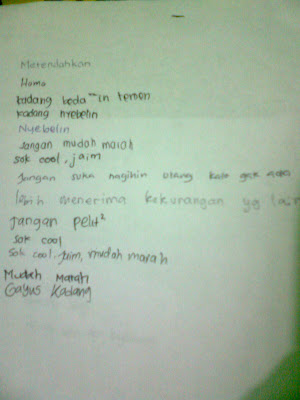 Merendahkan
Homo
kadang beda"in temen
kadang nyebelin
Nyebelin
Jangan mudah marah
sok cool, jaim
Jangan suka nagihin utang kalo gak ada
lebih menerima kekurangan yg lain
Jangan pelit²
sok cool
sok cool, jaim, mudah marah
Mudah marah
Gayus kadang